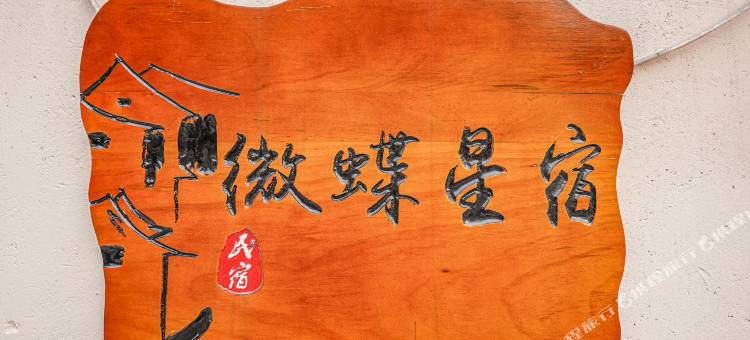 微蝶星宿
民宿
携程旅行